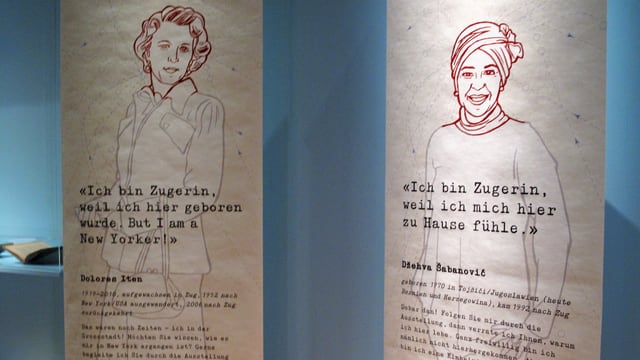 «Ich bin Zugerin,
weil ich hier geboren
wurde. But I am a
New Yorker!»
Dolores Iten
1919–2010, aufgewachsen in Zug, 1952 nach
New York/USA ausgewandert, 2006 nach Zug
zurückgekehrt
Das waren noch Zeiten – ich in der
Grossstadt! Möchten Sie wissen, wie es
mir in New York ergangen ist? Gerne
begleite ich Sie durch die Ausstellung
«Ich bin Zugerin,
weil ich mich hier
zu Hause fühle.»
Džehva Šabanović
geboren 1970 in Tojšići/Jugoslawien (heute
Bosnien und Herzegowina), kam 1992 nach Zug
Dobar dan! Folgen Sie mir durch die
Ausstellung, dann verrate ich Ihnen, warum
ich hier lebe. Ganz freiwillig bin ich
nämlich nicht hierhergekommen
bin ich eine